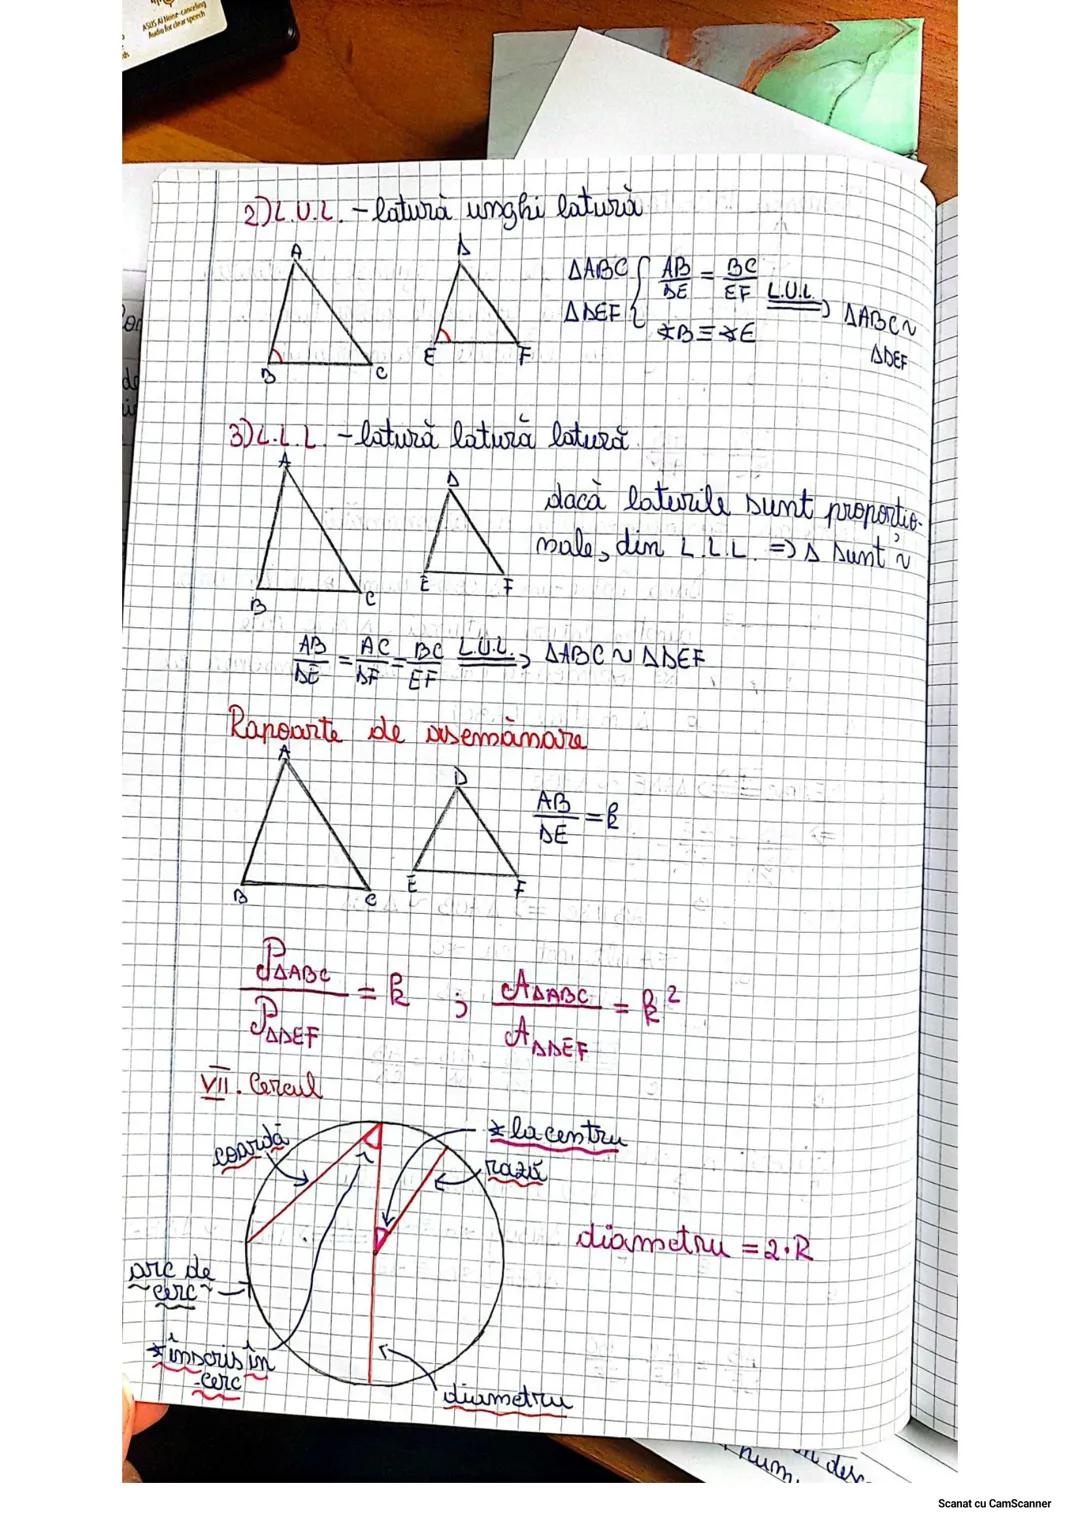 ASUS AI Noise-canceling
Audio for clear speech
2) L.U.L. - latură unghi latură
A
D
B
C
E
F
ΔABC { AB/DE = BC/EF
ΔDEF { ∢B ≡ ∢E
L.U.L. ⟹ ΔABC ~
ΔDEF
3) L.L.L. - latură latură latură
A
D
B
C
E
F
dacă laturile sunt proporțio-
nale, din L.L.L. => Δ sunt ~
AB/DE = AC/DF = BC/EF L.U.L. ⟹ ΔABC ~ ΔDEF
Rapoarte de asemănare
A
D
B
C
E
F
AB/DE = k
PΔABC/PΔDEF = k ; AΔABC/AΔDEF = k²
VII. Cercul
coardă
∢ la centru
rază
diametru = 2·R
arc de
cerc
∢ înscris în
cerc
diametru
num.
Scanat cu CamScanner